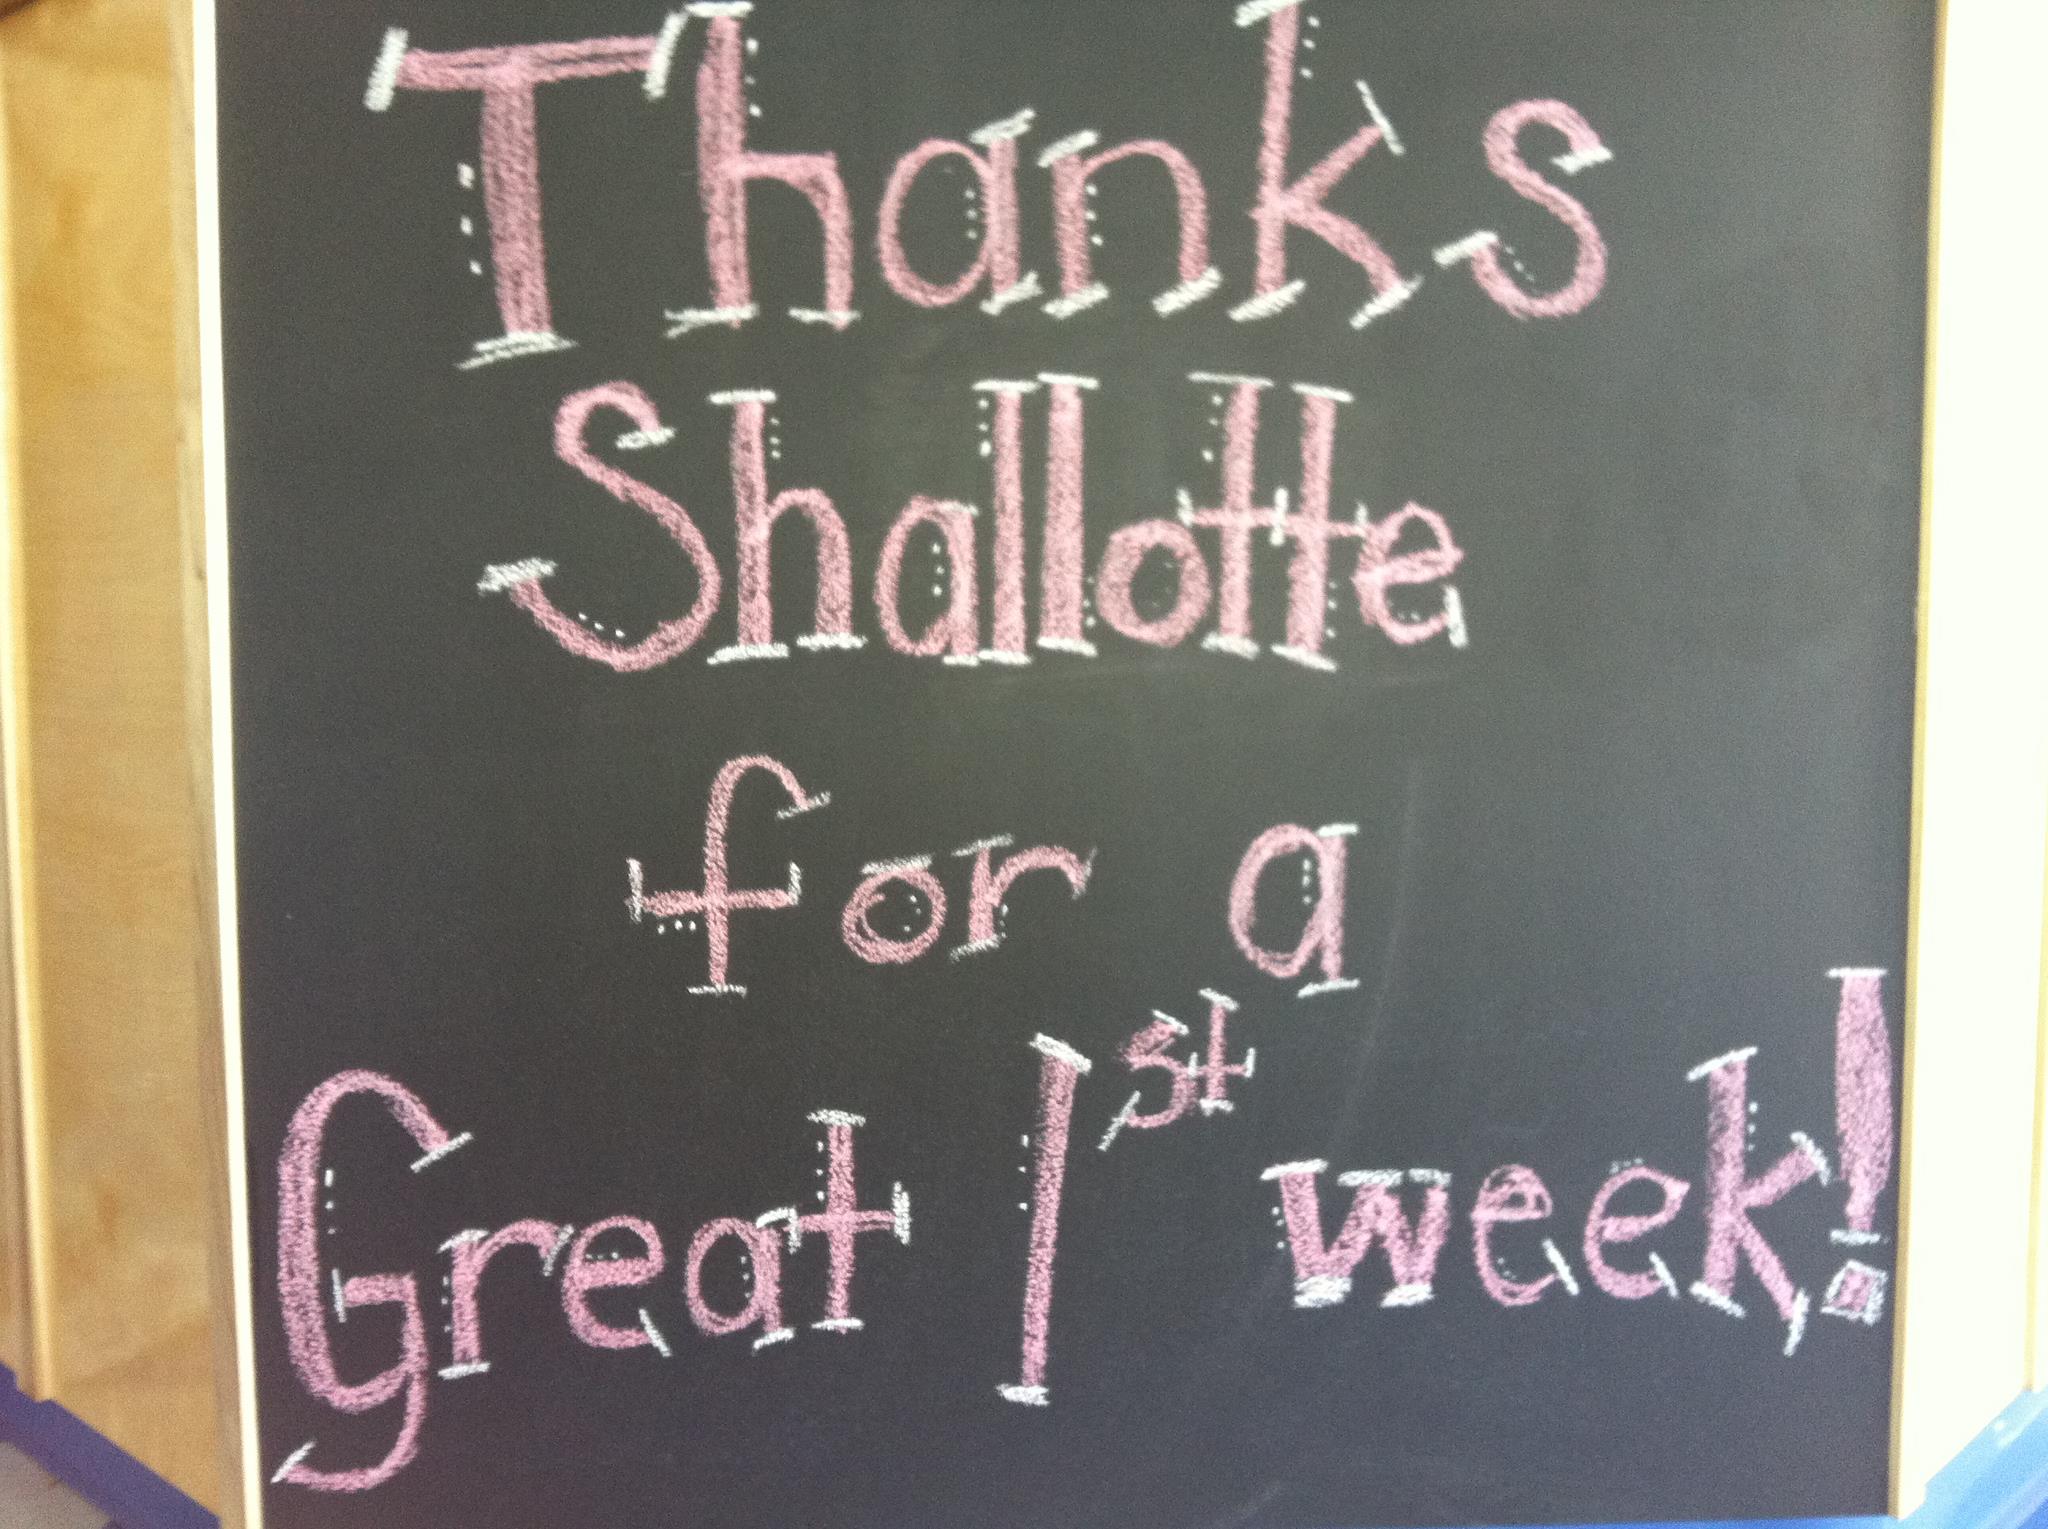 Thanks
Shallotte
for a
Great 1st week!